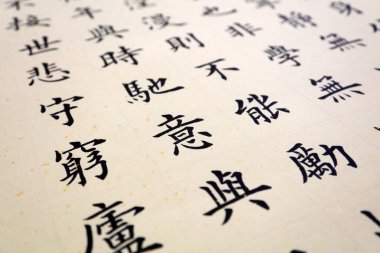 非學無
漫則不能勵
年與時馳意與
不接世悲守窮廬